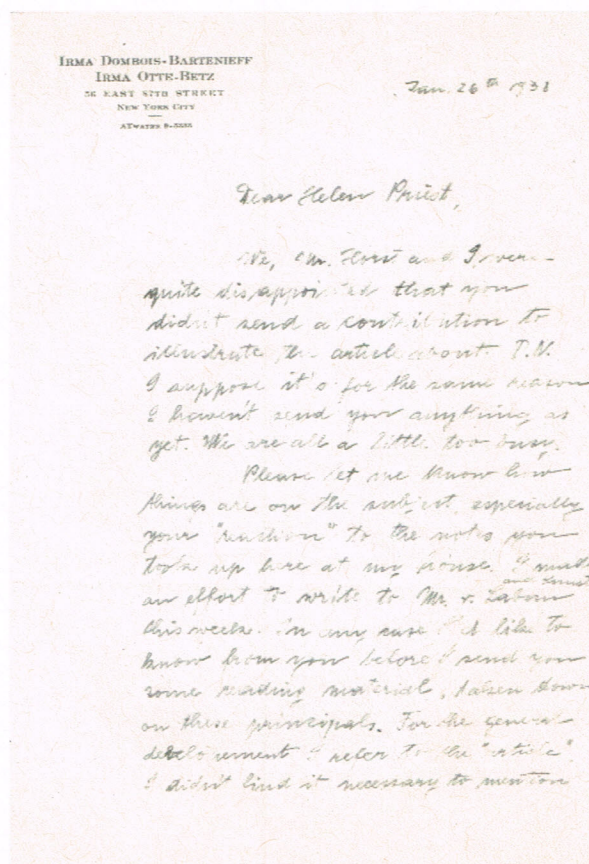 IRMA DOMBOIS-BARTENIEFF
IRMA OTTE-BETZ
56 EAST 87TH STREET
NEW YORK CITY
Jan. 26th 1938
Dear Helen Priest,
We, Mr. Horst and I, were
quite disappointed that you
didn't send a contribution to
illustrate the article about D.N.
I suppose it's for the same reason
I haven't send you anything as
yet. We are all a little too busy.
Please let me know how
things are on the subject, especially
your "reaction" to the notes you
took up here at my house. I
and
an effort to write to Mr. v. Laban
this week. In any case I'd like to
know from you before I send you
some reading material, taken down
on these principals. For the general
development I refer to the "article".
I didn't find it necessary to mention